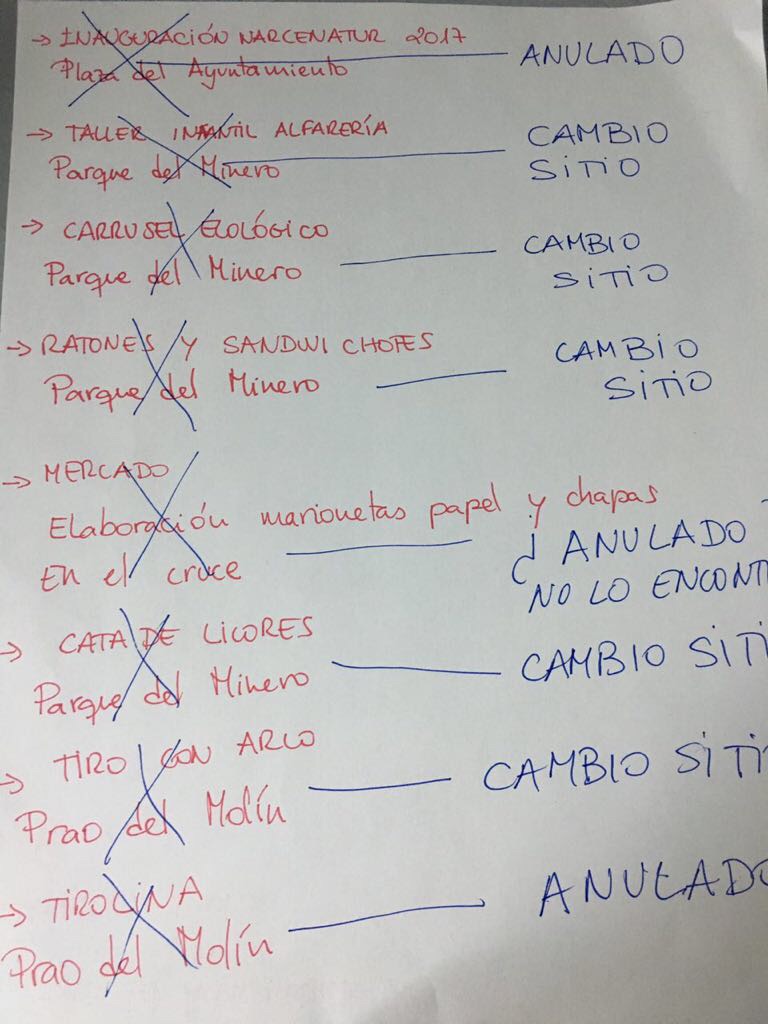 → INAUGURACIÓN NARCENATUR 2017
Plaza del Ayuntamiento ANULADO
→ TALLER INFANTIL ALFARERÍA CAMBIO
Parque del Minero SITIO
→ CARRUSEL ECOLÓGICO CAMBIO
Parque del Minero SITIO
→ RATONES Y SANDWICHOFES CAMBIO
Parque del Minero SITIO
→ MERCADO
Elaboración marionetas papel y chapas
¿ ANULADO
En el cruce NO LO ENCONT
→ CATA DE LICORES CAMBIO SITI
Parque del Minero
→ TIRO CON ARCO CAMBIO SITI
Prao del Molín
→ TIROLINA ANULADO
Prao del Molín